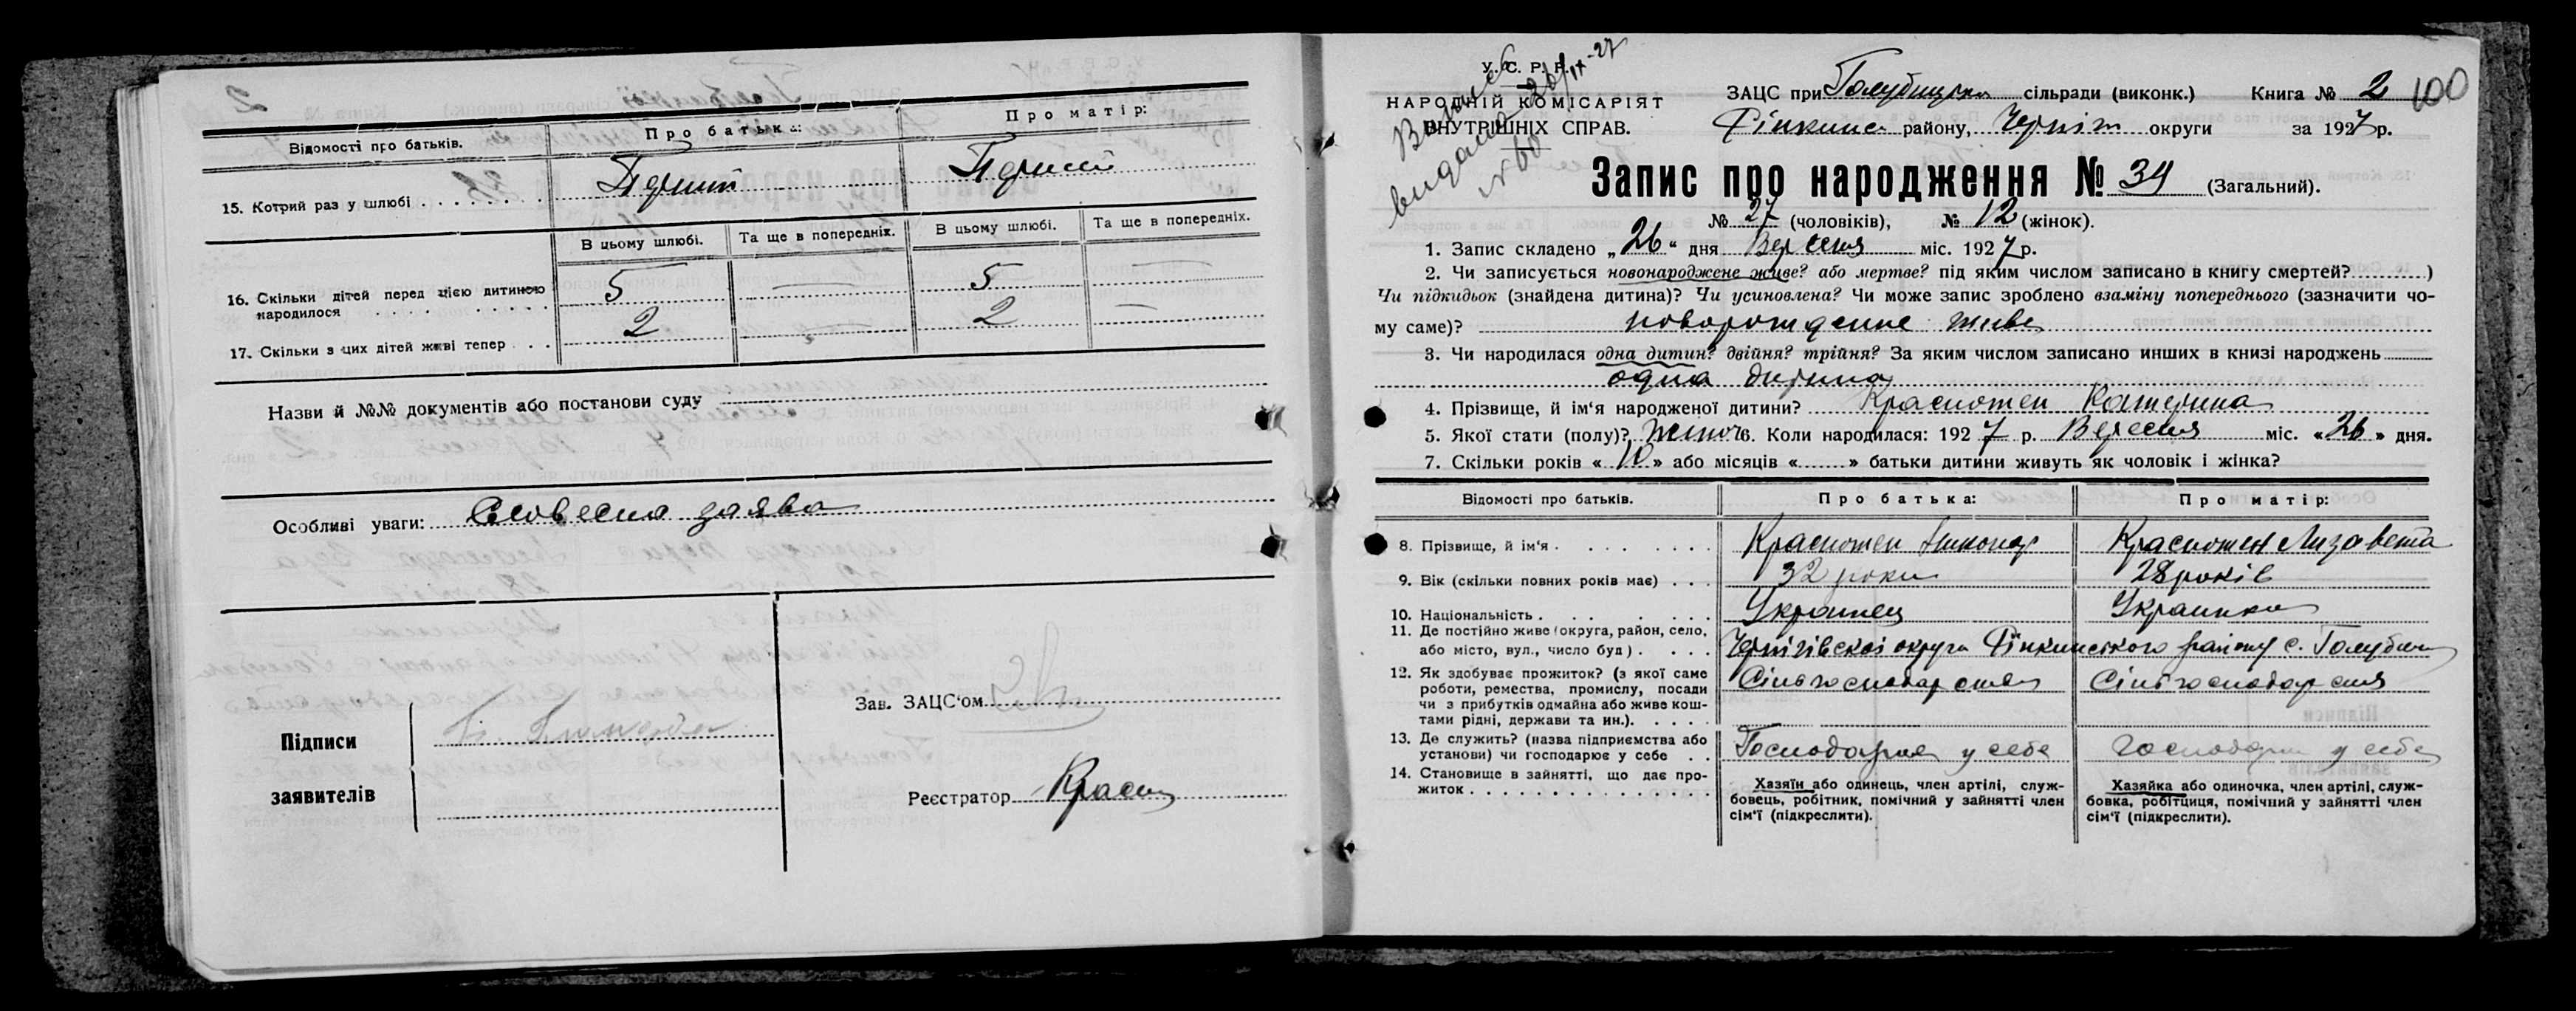 Відомості про батьків.
Про батька:
Про матір:
15. Котрий раз у шлюбі
Перший
Перший
В цьому шлюбі.
Та ще в попередніх.
В цьому шлюбі.
Та ще в попередніх.
16. Скільки дітей перед цією дитиною
народилося
5
—
5
—
17. Скільки з цих дітей живі тепер
2
—
2
—
Назви й №№ документів або постанови суду
Особливі уваги: Словесна заява
Підписи
заявителів
Зав. ЗАЦС'ом
Реєстратор Красн
У. С. Р. Р.
НАРОДНІЙ КОМІСАРІЯТ
ВНУТРІШНІХ СПРАВ.
видана
№ 60
26/IX-27
ЗАЦС при сільради (виконк.) Книга № 2
100
району, Черніг округи за 1927 р.
Запис про народження № 34 (Загальний).
№ 27 (чоловіків), № 12 (жінок).
1. Запис складено „26" дня Вересня міс. 1927 р.
2. Чи записується новонароджене живе? або мертве? під яким числом записано в книгу смертей? )
Чи підкидьок (знайдена дитина)? Чи усиновлена? Чи може запис зроблено взаміну попереднього (зазначити чо-
му саме)? новорожденне живе
3. Чи народилася одна дитин? двійня? трійня? За яким числом записано инших в книзі народжень
одна дитина
4. Прізвище, й ім'я народженої дитини? Красножен Катерина
5. Якої стати (полу)? Жіноч 6. Коли народилася: 1927 р. Вересня міс. «26» дня.
7. Скільки років «10» або місяців « » батьки дитини живуть як чоловік і жінка?
Відомості про батьків.
Про батька:
Про матір:
8. Прізвище, й ім'я
Красножен Никонор
Красножен Лизавета
9. Вік (скільки повних років має)
32 роки
28 років
10. Національність
Украинец
Украинка
11. Де постійно живе (округа, район, село,
або місто, вул., число буд)
Чернігівскої округи Ріпкинського району с. Голубичи
12. Як здобуває прожиток? (з якої саме
роботи, ремества, промислу, посади
чи з прибутків одмайна або живе кош-
тами рідні, держави та ин.).
Сільгосподарством
Сільгосподарства
13. Де служить? (назва підприємства або
установи) чи господарює у себе
Господарює у себе
Господарює у себе
14. Становище в зайнятті, що дає про-
житок
Хазяїн або одинець, член артілі, служ-
бовець, робітник, помічний у зайнятті член
сім'ї (підкреслити).
Хазяйка або одиночка, член артілі, служ-
бовка, робітниця, помічний у зайнятті член
сім'ї (підкреслити).